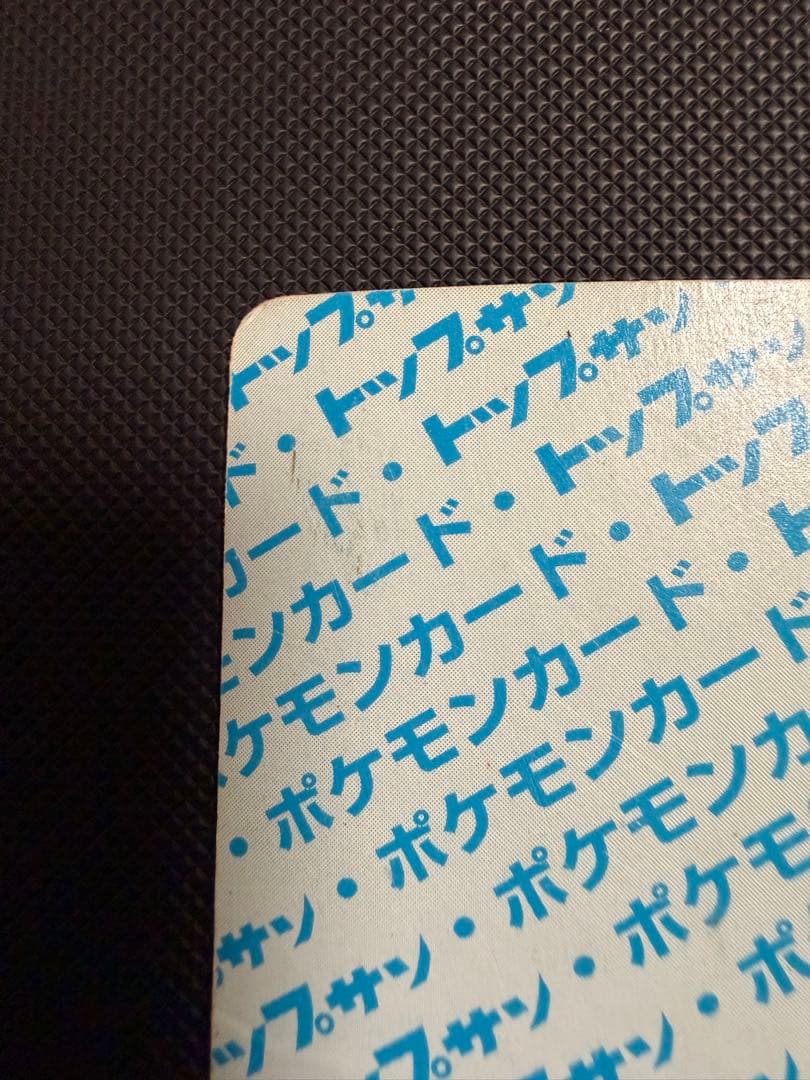 トップサ
ド・トップサン
カード・トップサン
モンカード・トップサン
ケモンカード・トップ
・ポケモンカード・ト
サン・ポケモンカード
ップサン・ポケモンカ
プサン・ポケモ
サン・ポ